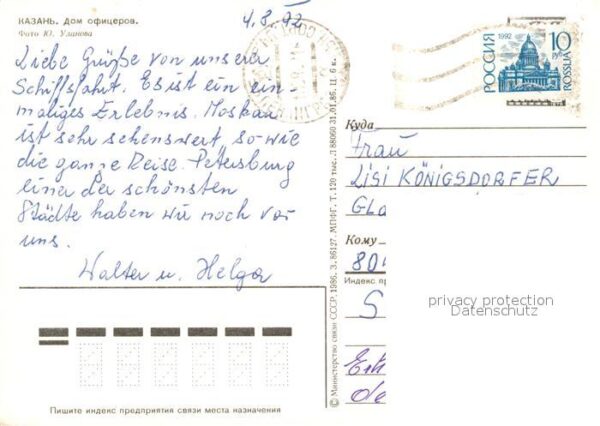 КАЗАНЬ. Дом офицеров.
Фото Ю. Уланова
4.8.92
Liebe Grüße von unserer
Schiffsfahrt. Es ist ein ein-
maliges Erlebnis. Moskau
ist sehr sehenswert, so wie
die ganze Reise. Petersburg
einer der schönsten
Städte haben wir noch vor
uns.
Walter u. Helga
РОССИЯ 1992 10 руб ROSSIJA
Куда
Frau
LISI KÖNIGSDORFER
GLO
Кому
80
Индекс пр
S
privacy protection
Datenschutz
de
© Министерство связи СССР. 1986. З. 86127. МПФГ. Т. 120 тыс. Л 88060 31.01.86. Ц. 6 к.
Пишите индекс предприятия связи места назначения